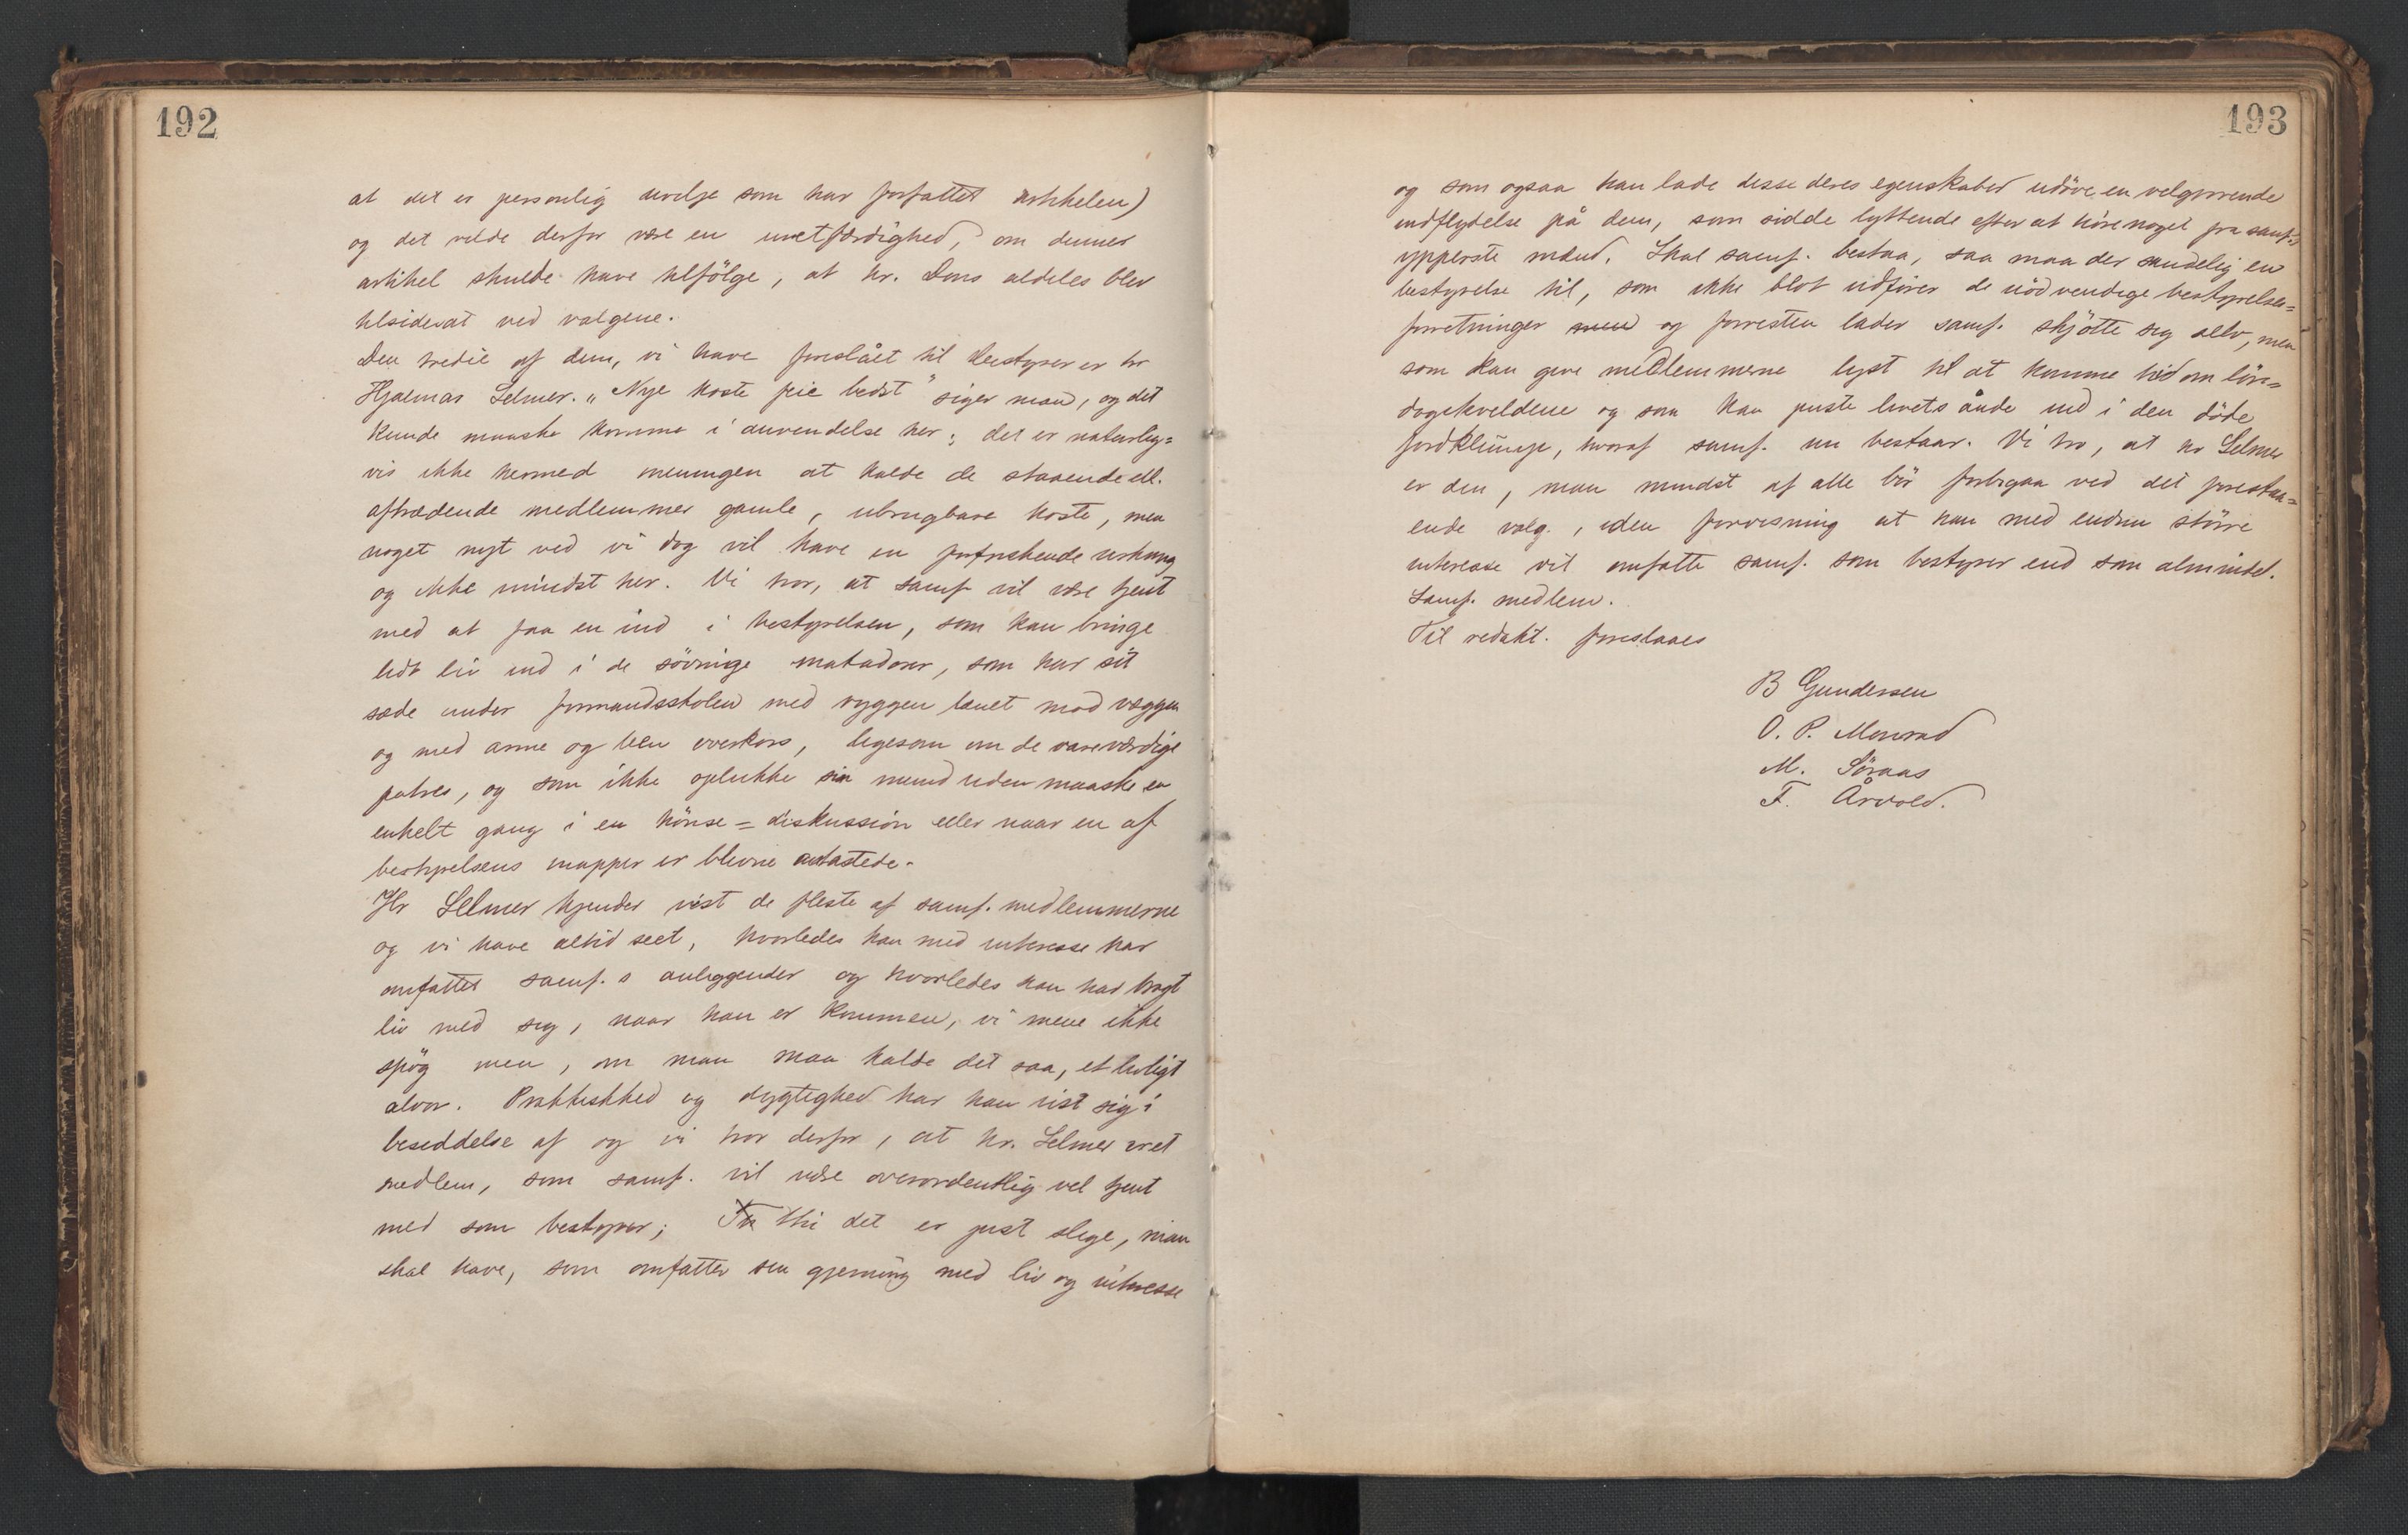 192
at det er personlig uvilje som har forfattet artikelen)
og det vilde derfor være en uretfærdighed, om denne
artikel skulde have tilfölge, at hr. Dons aldeles blev
tilsidesat ved valgene.
Den tredie af dem, vi have foreslået til bestyrer er hr
Hjalmar Selmer. „Nye koste feie bedst" siger man, og det
kunde maaske komme i anvendelse her; det er naturlig=
vis ikke hermed meningen at kalde de staaende ell.
aftrædende medlemmer gamle, ubrugbare koste, men
noget nyt ved vi dog vil have en forfriskende virkning
og ikke mindst her. Vi tror, at samf. vil være tjent
med at faa en ind i bestyrelsen, som kan bringe
lidt liv ind i de sövnige matadorer, som har sit
sæde under formandsstolen med ryggen lænet mod væggen
og med arme og ben overkors, ligesom om de vare værdige
patres, og som ikke oplukke sin mund uden maaske en
enkelt gang i en hönse=diskussion eller naar en af
bestyrelsens mapper er blevne antastede.
Hr Selmer kjender vist de fleste af samf. medlemmerne
og vi have altid seet, hvorledes han med interesse har
omfattet samf.s anliggender og hvorledes han har bragt
liv med sig, naar han er kommen, vi mene ikke
spög men, om man maa kalde det saa, et livligt
alvor. Praktiskhed og dygtighed har han vist sig i
besiddelse af og vi tror derfor, at hr. Selmer er et
medlem, som samf. vil være overordentlig vel tjent
med som bestyrer; thi det er just slige, man
skal have, som omfatter sin gjerning med liv og interesse
193
og som ogsaa kan lade disse deres egenskaber udöve en velgjörende
indflydelse på dem, som sidde lyttende efter at höre noget fra samf.s
ypperste mænd. Skal samf. bestaa, saa maa der sandelig en
bestyrelse til, som ikke blot udförer de nödvendige bestyrelses=
forretninger men og forresten lader samf. skjötte sig selv, men
som kan give medlemmerne lyst til at komme hid om lör=
dagskveldene og som kan puste livets ånde ind i den döde
jordklump, hvoraf samf. nu bestaar. Vi tro, at hr Selmer
er den, man mindst af alle bör forbigaa ved det forestaa=
ende valg, i den forvisning at han med endnu större
interesse vil omfatte samf. som bestyrer end som almindel.
samf. medlem.
Til redakt. foreslaaes
B Gundersen
O. P. Monrad
M. Söraas
F. Årvold.